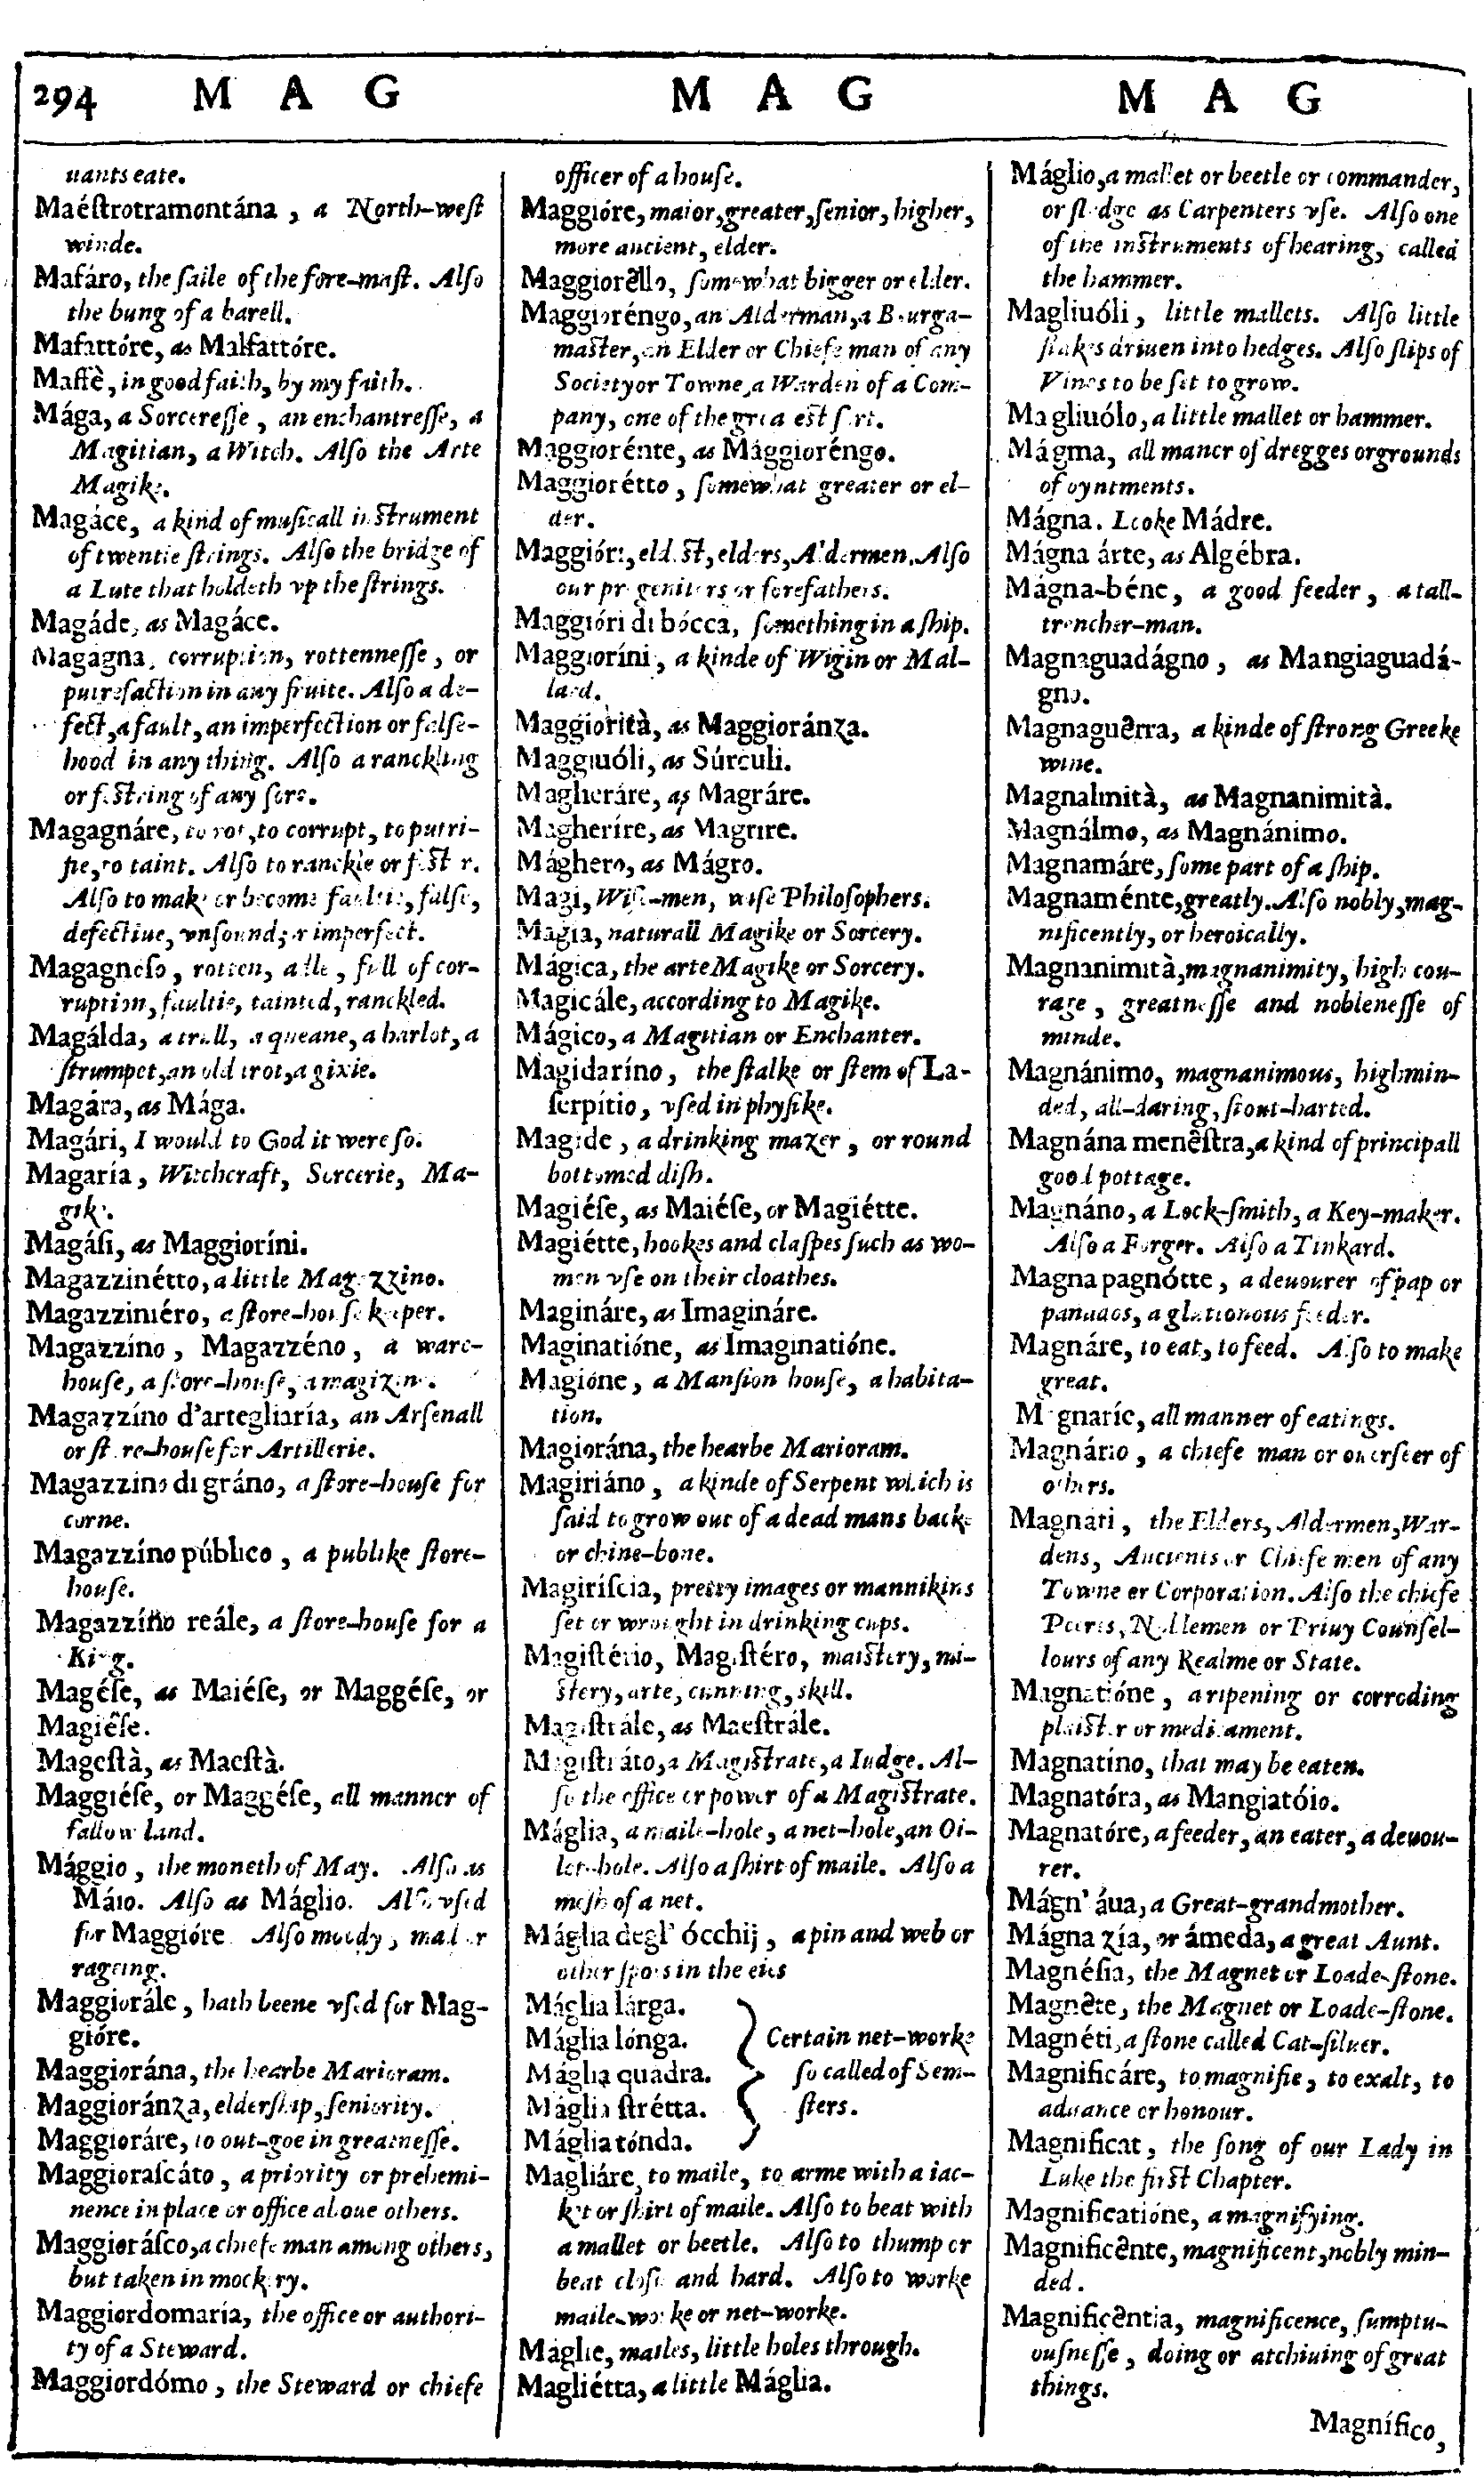 294 M A G M A G M A G
uants eate.
Maéſtrotramontána, a North-weſt
winde.
Mafáro, the ſaile of the fore-maſt. Alſo
the bung of a barell.
Mafattóre, as Malfattóre.
Maffè, in good faith, by my faith.
Mága, a Sorcereſſe, an enchantreſſe, a
Magitian, a Witch. Alſo the Arte
Magike.
Magáce, a kind of muſicall inſtrument
of twentie ſtrings. Alſo the bridge of
a Lute that holdeth vp the ſtrings.
Magáde, as Magáce.
Magágna, corruption, rottenneſſe, or
putrefaction in any fruite. Alſo a de-
fect, a fault, an imperfection or falſe-
hood in any thing. Alſo a ranckling
or feſtring of any ſore.
Magagnáre, to rot, to corrupt, to putri-
fie, to taint. Alſo to ranckle or feſter.
Alſo to make or become faultie, falſe,
defectiue, vnſound, or imperfect.
Magagnóſo, rotten, full of cor-
ruption, faultie, tainted, ranckled.
Magálda, a trull, a queane, a harlot, a
ſtrumpet, an old trot, a gixie.
Magára, as Mága.
Magári, I would to God it were ſo.
Magaría, Witchcraft, Sorcerie, Ma-
gike.
Magáſi, as Maggioríni.
Magazzinétto, a little Magazzino.
Magazziniéro, a ſtore-houſe keeper.
Magazzíno, Magazzéno, a ware-
houſe, a ſtore-houſe, a magizine.
Magazzíno d'artegliaría, an Arſenall
or ſtore-houſe for Artillerie.
Magazzino di gráno, a ſtore-houſe for
corne.
Magazzíno público, a publike ſtore-
houſe.
Magazzíno reále, a ſtore-houſe for a
King.
Magéſe, as Maiéſe, or Maggéſe, or
Magiêſe.
Mageſtà, as Maeſtà.
Maggiéſe, or Maggéſe, all manner of
fallow land.
Mággio, the moneth of May. Alſo as
Máio. Alſo as Máglio. Alſo vſed
for Maggióre. Alſo moody, mad or
rageing.
Maggiorále, hath beene vſed for Mag-
gióre.
Maggiorána, the hearbe Marioram.
Maggioránza, elderſhip, ſeniority.
Maggioráre, to out-goe in greatneſſe.
Maggioraſcáto, a priority or prehemi-
nence in place or office aboue others.
Maggioráſco, a chiefe man among others,
but taken in mockery.
Maggiordomaría, the office or authori-
ty of a Steward.
Maggiordómo, the Steward or chiefe
officer of a houſe.
Maggióre, maior, greater, ſenior, higher,
more ancient, elder.
Maggiorêllo, ſomewhat bigger or elder.
Maggioréngo, an Alderman, a Bourga-
maſter, an Elder or Chiefe man of any
Society or Towne, a Warden of a Com-
pany, one of the greateſt ſort.
Maggiorénte, as Maggioréngo.
Maggiorétto, ſomewhat greater or el-
der.
Maggióri, eldeſt, elders, Aldermen. Alſo
our progenitors or forefathers.
Maggióri di bócca, ſomething in a ſhip.
Maggioríni, a kinde of Wigin or Mal-
lard.
Maggiorità, as Maggioránza.
Maggiuóli, as Súrculi.
Magheráre, as Magráre.
Magheríre, as Magríre.
Mághero, as Mágro.
Magi, Wiſe-men, wiſe Philoſophers.
Magía, naturall Magike or Sorcery.
Mágica, the arte Magike or Sorcery.
Magicále, according to Magike.
Mágico, a Magitian or Enchanter.
Magidaríno, the ſtalke or ſtem of La-
ſerpítio, vſed in phyſike.
Magíde, a drinking mazer, or round
bottomed diſh.
Magiéſe, as Maiéſe, or Magiétte.
Magiétte, hookes and claſpes ſuch as wo-
men vſe on their cloathes.
Magináre, as Imagináre.
Maginatióne, as Imaginatióne.
Magióne, a Manſion houſe, a habita-
tion.
Magiorána, the hearbe Marioram.
Magiriáno, a kinde of Serpent which is
ſaid to grow out of a dead mans backe
or chine-bone.
Magiríſcia, pretty images or mannikins
ſet or wrought in drinking cups.
Magiſtério, Magiſtéro, maiſtery, mi-
ſtery, arte, cunning, skill.
Magiſtrále, as Maeſtrále.
Magiſtráto, a Magiſtrate, a Iudge. Al-
ſo the office or power of a Magiſtrate.
Máglia, a maile-hole, a net-hole, an Oi-
let-hole. Alſo a ſhirt of maile. Alſo a
meſh of a net.
Máglia degl' ócchij, a pin and web or
other ſpots in the eies
Máglia lárga.
Máglia lónga. Certain net-worke
Máglia quádra. ſo called of Sem-
Máglia ſtrétta. ſters.
Máglia tónda.
Magliáre, to maile, to arme with a iac-
ket or ſhirt of maile. Alſo to beat with
a mallet or beetle. Alſo to thump or
beat cloſe and hard. Alſo to worke
maile-worke or net-worke.
Máglie, mailes, little holes through.
Magliétta, a little Máglia.
Máglio, a mallet or beetle or commander,
or ſledge as Carpenters vſe. Alſo one
of the inſtruments of hearing, called
the hammer.
Magliuóli, little mallets. Alſo little
ſtakes driuen into hedges. Alſo ſlips of
Vines to be ſet to grow.
Magliuólo, a little mallet or hammer.
Mágma, all maner of dregges or grounds
of oyntments.
Mágna. Looke Mádre.
Mágna árte, as Algébra.
Mágna-béne, a good feeder, a tall-
trencher-man.
Magnaguadágno, as Mangiaguadá-
gno.
Magnaguêrra, a kinde of ſtrong Greeke
wine.
Magnalmità, as Magnanimità.
Magnálmo, as Magnánimo.
Magnamáre, ſome part of a ſhip.
Magnaménte, greatly. Alſo nobly, mag-
nificently, or heroically.
Magnanimità, magnanimity, high cou-
rage, greatneſſe and nobleneſſe of
minde.
Magnánimo, magnanimous, highmin-
ded, all-daring, ſtout-harted.
Magnána menêſtra, a kind of principall
good pottage.
Magnáno, a Lock-ſmith, a Key-maker.
Alſo a Forger. Alſo a Tinkard.
Magna pagnótte, a deuourer of pap or
panados, a gluttonous feeder.
Magnáre, to eat, to feed. Alſo to make
great.
Magnaríe, all manner of eatings.
Magnário, a chiefe man or ouerſeer of
others.
Magnáti, the Elders, Aldermen, War-
dens, Ancients or Chiefe men of any
Towne or Corporation. Alſo the chiefe
Peeres, Noblemen or Priuy Counſel-
lours of any Realme or State.
Magnatióne, a ripening or corroding
plaiſter or medicament.
Magnatíno, that may be eaten.
Magnatóra, as Mangiatóio.
Magnatóre, a feeder, an eater, a deuou-
rer.
Mágn' áua, a Great-grandmother.
Mágna zía, or ámeda, a great Aunt.
Magnéſia, the Magnet or Loade-ſtone.
Magnête, the Magnet or Loade-ſtone.
Magnéti, a ſtone called Cat-ſiluer.
Magnificáre, to magnifie, to exalt, to
aduance or honour.
Magnificat, the ſong of our Lady in
Luke the firſt Chapter.
Magnificatióne, a magnifying.
Magnificênte, magnificent, nobly min-
ded.
Magnificêntia, magnificence, ſumptu-
ouſneſſe, doing or atchiuing of great
things.
Magnífico,